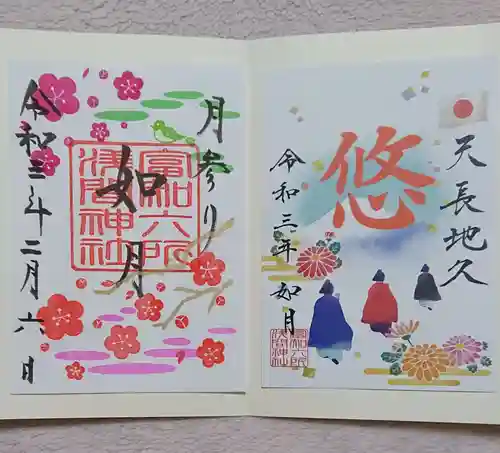 天長地久
悠
令和三年如月
富知六所
浅間神社
月参り
如月
富知六所
浅間神社
令和三年二月六日